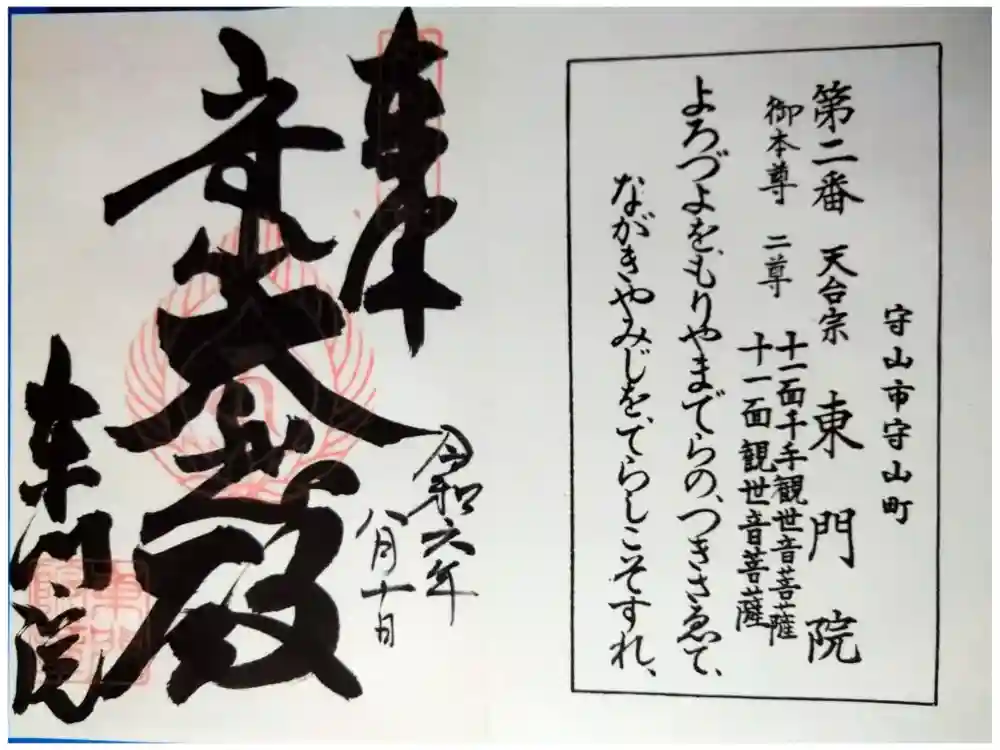 守山市守山町
第二番 天台宗 東門院
御本尊 二尊 十一面千手観世音菩薩
十一面観世音菩薩
よろづよを、もりやまでらの、つきさゑて、
ながきやみじを、てらしこそすれ、
奉拝
令和六年
八月十日
守山
大悲殿
東門院